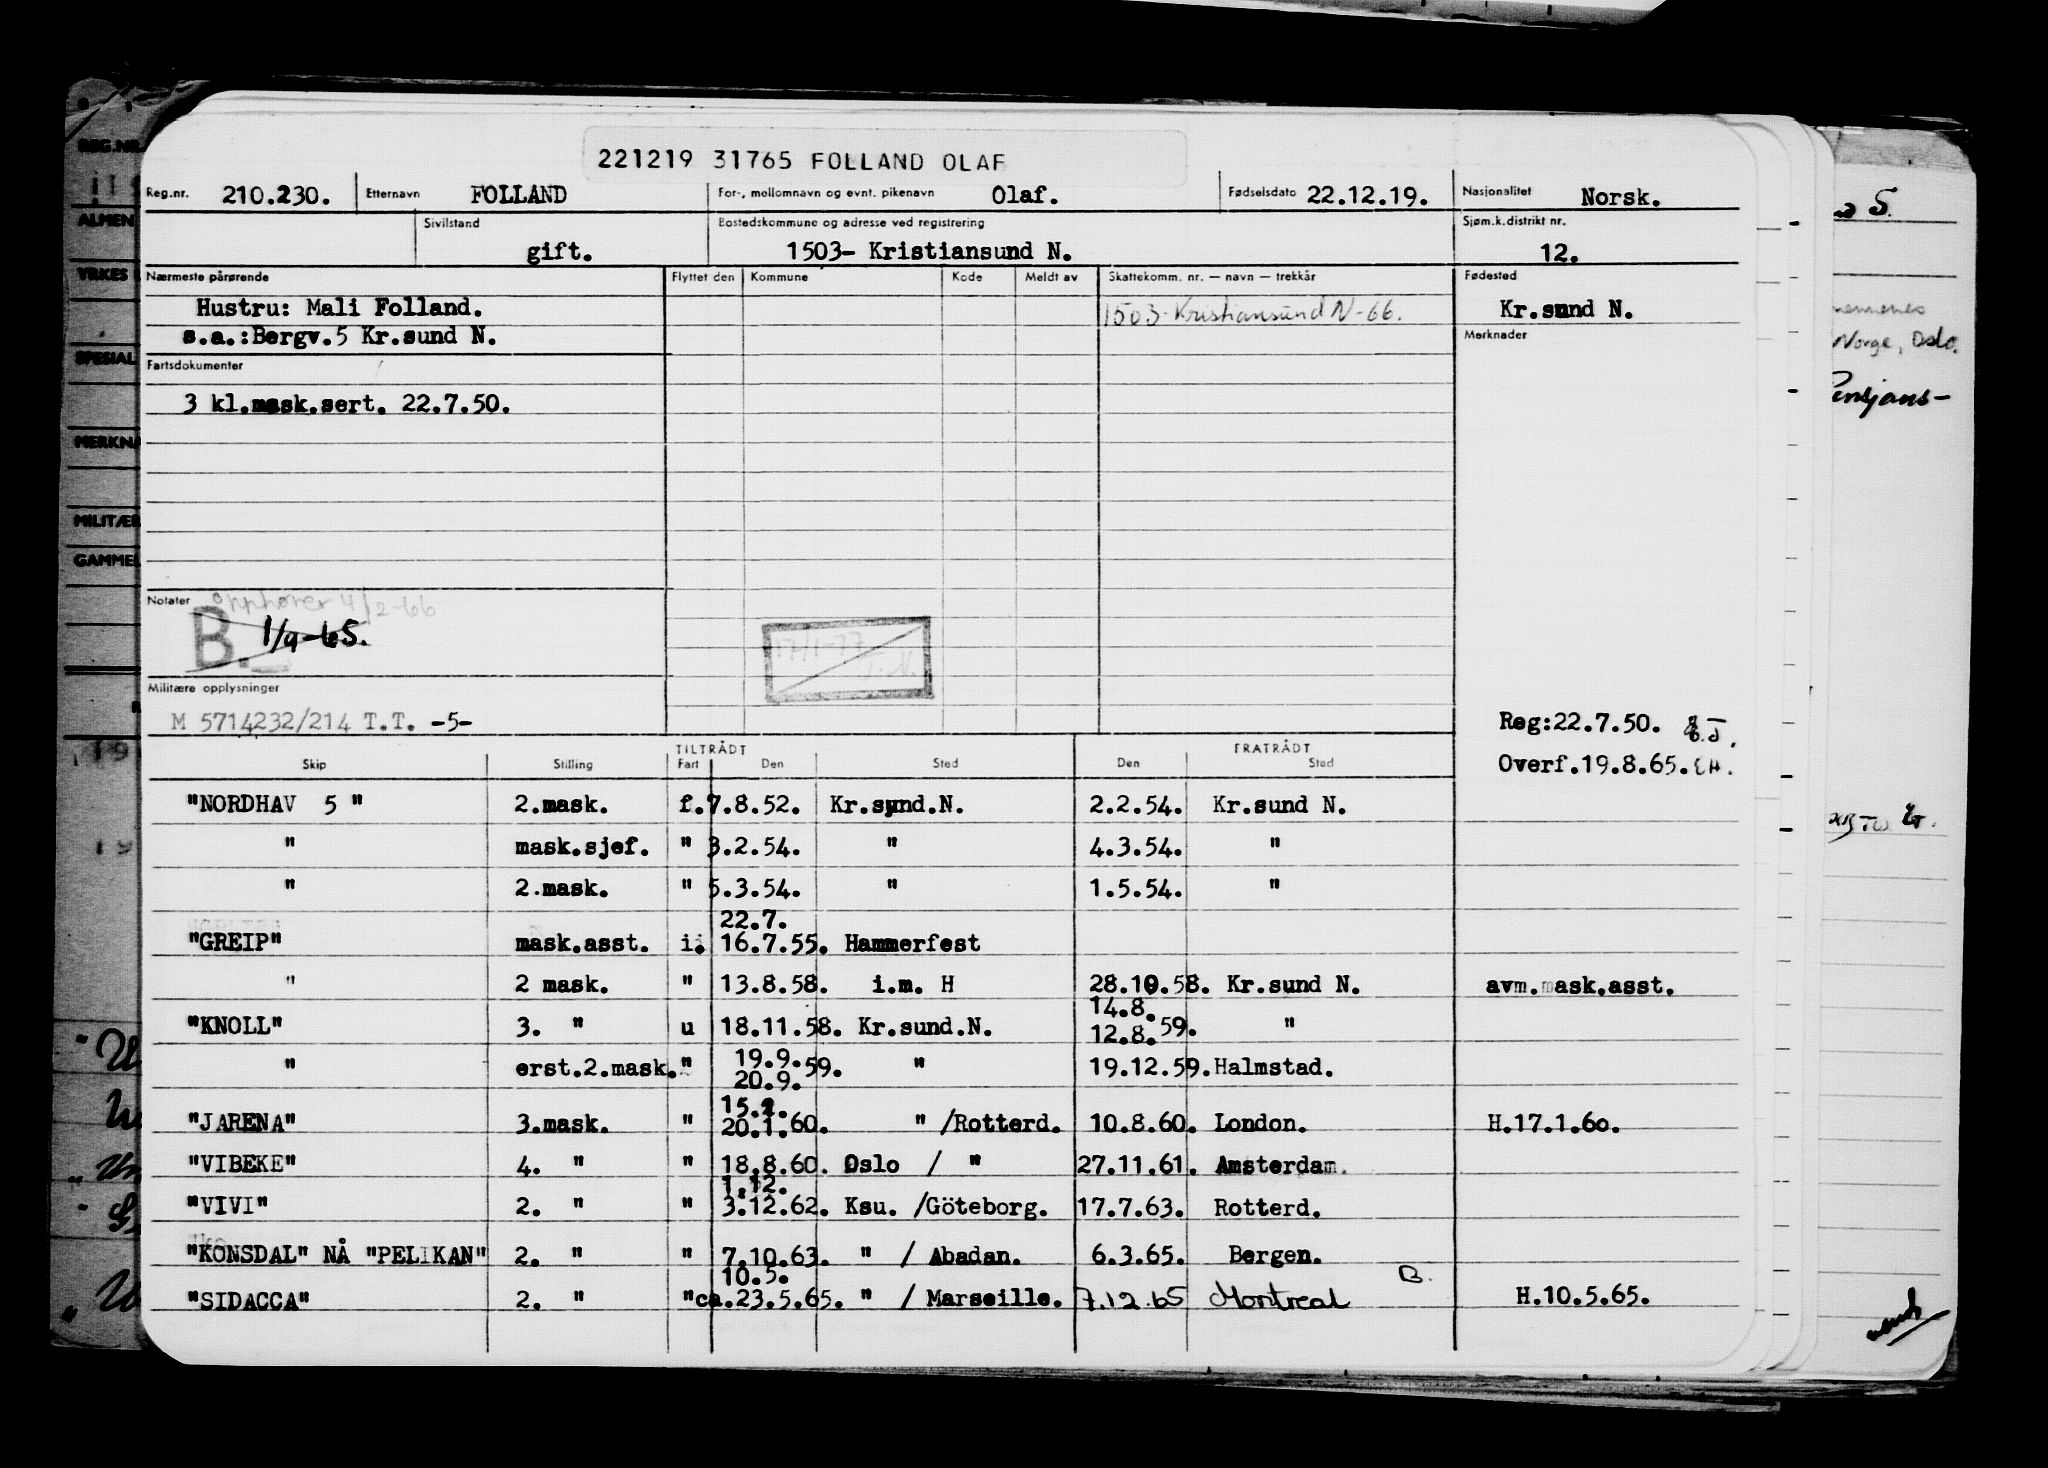 221219 31765 FOLLAND OLAF
Reg.nr. 210.230. Etternavn FOLLAND For-, mellomnavn og evnt. pikenavn Olaf. Fødselsdato 22.12.19. Nasjonalitet Norsk.
Sivilstand gift. Bostedskommune og adresse ved registrering 1503- Kristiansund N. Sjøm.k.distrikt nr. 12.
Nærmeste pårørende Flyttet den Kommune Kode Meldt av Skattekomm. nr. — navn — trekkår Fødested
Hustru: Mali Folland. 1503-Kristiansund N-66. Kr.sund N.
s.a.:Bergv.5 Kr.sund N. Merknader
Fartsdokumenter
3 kl.mask.sert. 22.7.50.
Notater opphører 4/2-66
B. 1/9-65.
17/1-77
Militære opplysninger
M 5714232/214 T.T. -5-
Reg:22.7.50.
Overf.19.8.65.
TILTRÅDT FRATRÅDT
Skip Stilling Fart Den Sted Den Sted
"NORDHAV 5 " 2.mask. f.7.8.52. Kr.sund.N. 2.2.54. Kr.sund N.
" mask.sjef. " 3.2.54. " 4.3.54. "
" 2.mask. " 5.3.54. " 1.5.54. "
22.7.
"GREIP" mask.asst. i. 16.7.55. Hammerfest
" 2 mask. " 13.8.58. i.m. H 28.10.58. Kr.sund N. avm.mask.asst.
14.8.
"KNOLL" 3. " u 18.11.58. Kr.sund.N. 12.8.59. "
19.9.
" erst.2.mask." 20.9.59. " 19.12.59. Halmstad.
"JARENA" 3.mask. " 20.1.60. " /Rotterd. 10.8.60. London. H.17.1.60.
"VIBEKE" 4. " " 18.8.60. Oslo / " 27.11.61. Amsterdam.
1.12.
"VIVI" 2. " " 3.12.62. Ksu. /Göteborg. 17.7.63. Rotterd.
"KONSDAL" NÅ "PELIKAN" 2. " " 7.10.63. " / Abadan. 6.3.65. Bergen.
10.5.
"SIDACCA" 2. " "ca.23.5.65. " / Marseille. 7.12.65 Montreal B. H.10.5.65.
REG.NR.
ALMEN
YRKES
SPESIAL
MERKNA
MILITÆR
GAMMEL
Norge, Oslo.